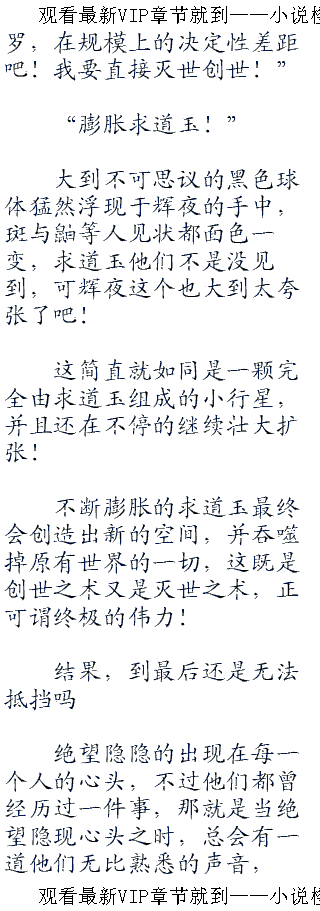 观看最新VIP章节就到——小说
罗，在规模上的决定性差距
吧！我要直接灭世创世！”
“膨胀求道玉！”
大到不可思议的黑色球
体猛然浮现于辉夜的手中，
斑与鼬等人见状都面色一
变，求道玉他们不是没见
到，可辉夜这个也大到太夸
张了吧！
这简直就如同是一颗完
全由求道玉组成的小行星，
并且还在不停的继续壮大扩
张！
不断膨胀的求道玉最终
会创造出新的空间，并吞噬
掉原有世界的一切，这既是
创世之术又是灭世之术，正
可谓终极的伟力！
结果，到最后还是无法
抵挡吗
绝望隐隐的出现在每一
个人的心头，不过他们都曾
经历过一件事，那就是当绝
望隐现心头之时，总会有一
道他们无比熟悉的声音，
观看最新VIP章节就到——小说